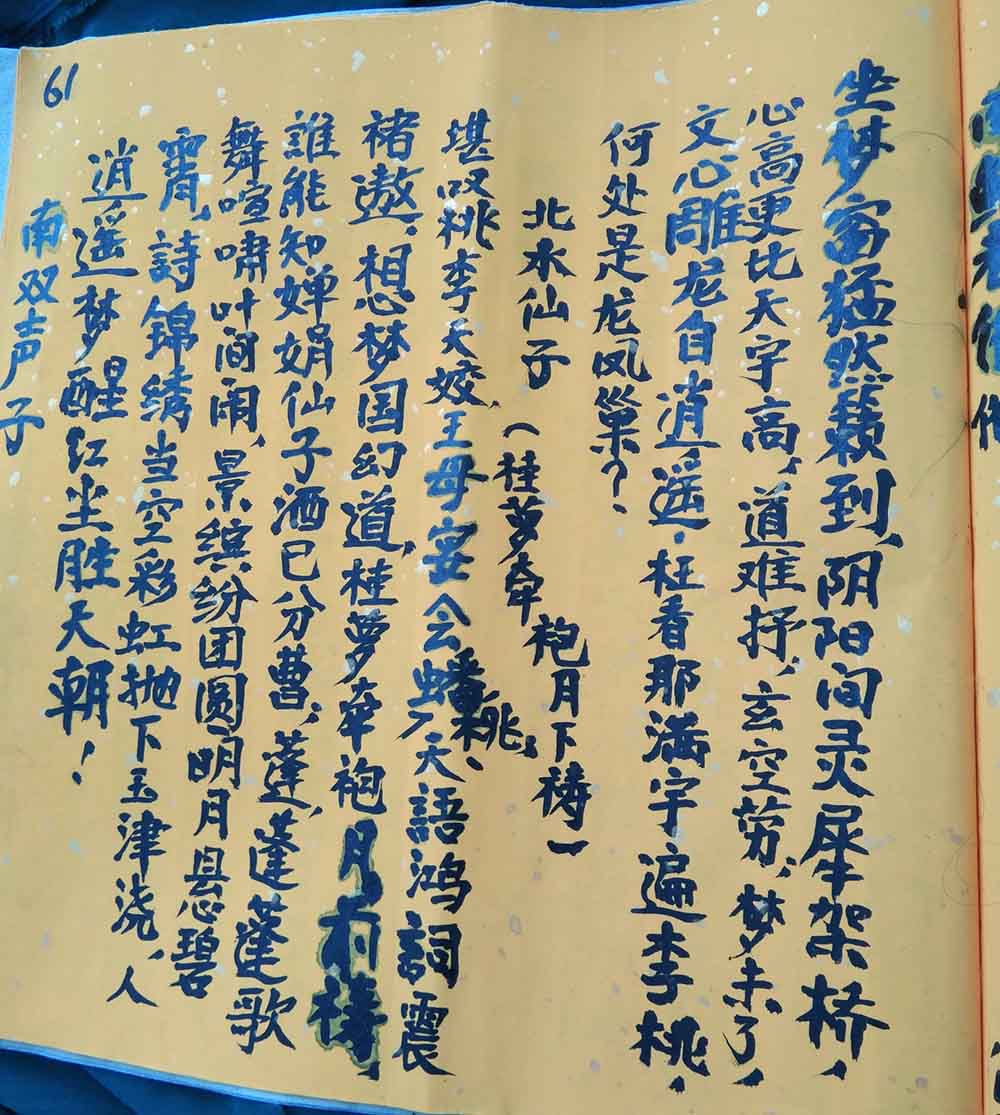 坐梦窗猛然籁到,阴阳间灵犀架桥,
心高更比天字高,道难抒,玄空劳,梦未了,
文心雕龙自逍遥,枉看那满宇遍李桃,
何处是龙凤巢?
北水仙子(桂萝牵袍月下祷一
堪叹桃李夭姣,王母宴会蟠桃、天語鸿詞震
褚遨,想梦国幻道,桂萝牵袍月前祷,
誰能知婵娟仙子洒已分曹,蓬,蓬蓬歌
舞喧啸叶间闹,景缤纷团圆明月悬碧
霄,詩锦绣当空彩虹抛下玉津浇,人
逍遥梦醒红尘胜天朝!
南双声子
61